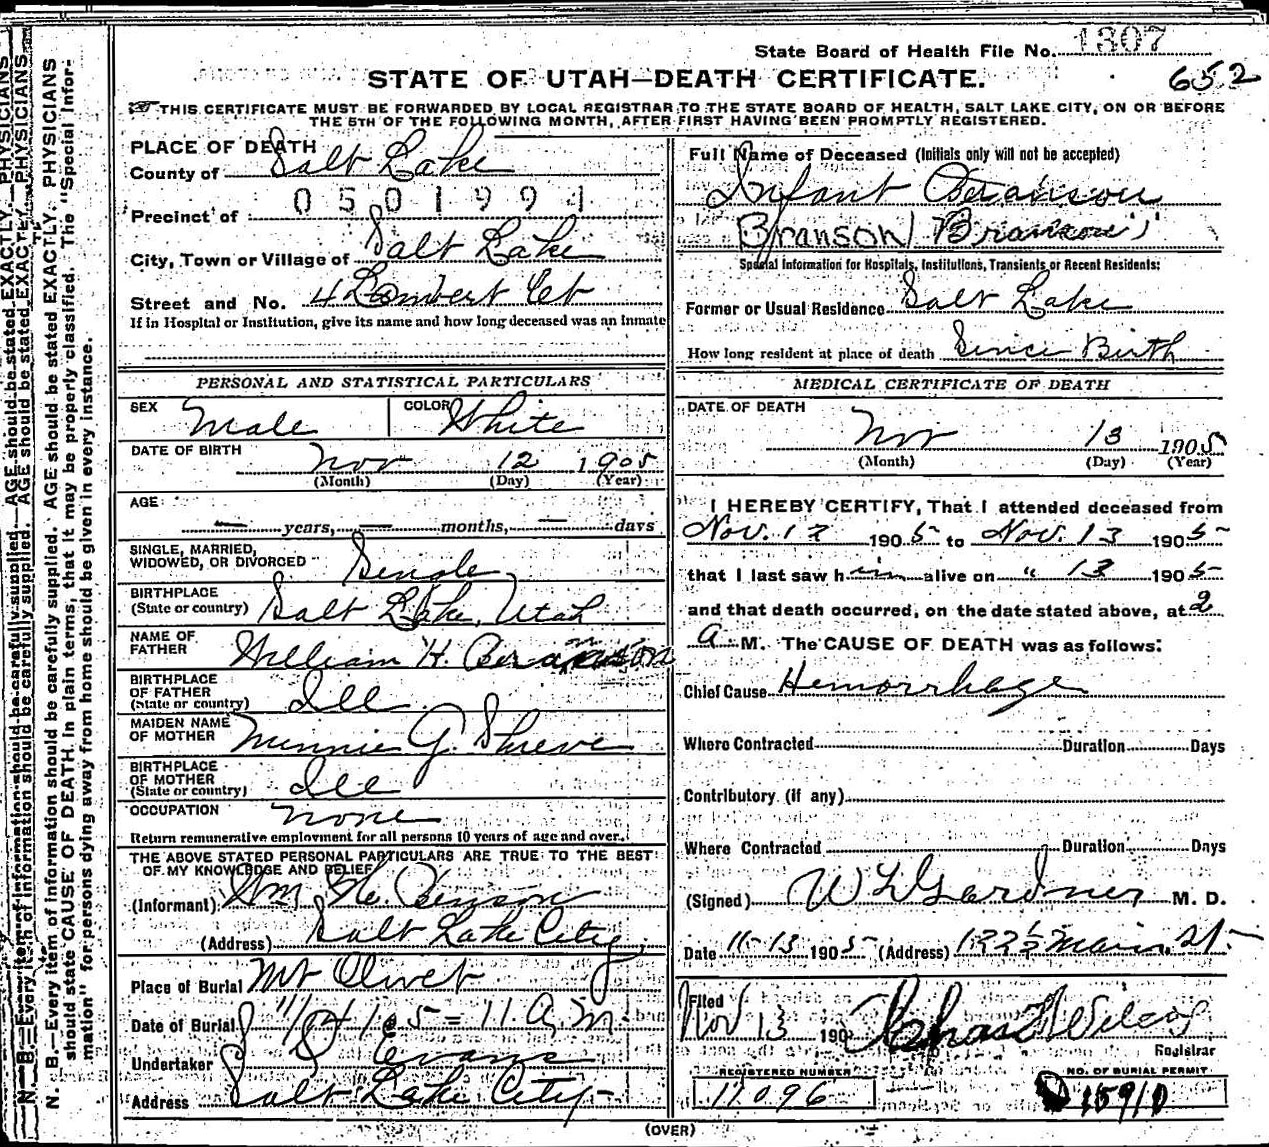 State Board of Health File No. 1307
652
STATE OF UTAH—DEATH CERTIFICATE.
THIS CERTIFICATE MUST BE FORWARDED BY LOCAL REGISTRAR TO THE STATE BOARD OF HEALTH, SALT LAKE CITY, ON OR BEFORE
THE 5TH OF THE FOLLOWING MONTH, AFTER FIRST HAVING BEEN PROMPTLY REGISTERED.
PLACE OF DEATH
County of Salt Lake
0501994
Precinct of
City, Town or Village of Salt Lake
Street and No. 4 Lambert Ct
If in Hospital or Institution, give its name and how long deceased was an Inmate
PERSONAL AND STATISTICAL PARTICULARS
SEX Male COLOR White
DATE OF BIRTH Nov 12 1905
(Month) (Day) (Year)
AGE
— years, — months, — days
SINGLE, MARRIED,
WIDOWED, OR DIVORCED Single
BIRTHPLACE
(State or country) Salt Lake, Utah
NAME OF
FATHER William H. Branson
BIRTHPLACE
OF FATHER
(State or country) Ill
MAIDEN NAME
OF MOTHER Minnie G. Shreve
BIRTHPLACE
OF MOTHER
(State or country) Ill
OCCUPATION none
Return remunerative employment for all persons 10 years of age and over.
THE ABOVE STATED PERSONAL PARTICULARS ARE TRUE TO THE BEST
OF MY KNOWLEDGE AND BELIEF
(Informant) Wm H. Benson
(Address) Salt Lake City
Place of Burial Mt Olivet
Date of Burial 11/14/05 = 11 a.m
Undertaker Evans
Address Salt Lake City
Full Name of Deceased (Initials only will not be accepted)
Infant Branson
Branson Branson
Special Information for Hospitals, Institutions, Transients or Recent Residents:
Former or Usual Residence Salt Lake
How long resident at place of death Since Birth
MEDICAL CERTIFICATE OF DEATH
DATE OF DEATH
Nov 13 1905
(Month) (Day) (Year)
I HEREBY CERTIFY, That I attended deceased from
Nov. 12 1905 to Nov. 13 1905
that I last saw him alive on " 13 1905
and that death occurred, on the date stated above, at 2
a M. The CAUSE OF DEATH was as follows:
Chief Cause Hemorrhage
Where Contracted Duration Days
Contributory (if any)
Where Contracted Duration Days
(Signed) W L Gardner M. D.
Date 11-13 1905 (Address) 122½ Main St.
Filed
Nov 13 190 Chas Wilcox
Registrar
REGISTERED NUMBER
11096
NO. OF BURIAL PERMIT
15910
(OVER)
N. B.—Every item of information should be carefully supplied. AGE should be stated EXACTLY. PHYSICIANS
should state CAUSE OF DEATH in plain terms, that it may be properly classified. The "Special Infor-
mation" for persons dying away from home should be given in every instance.